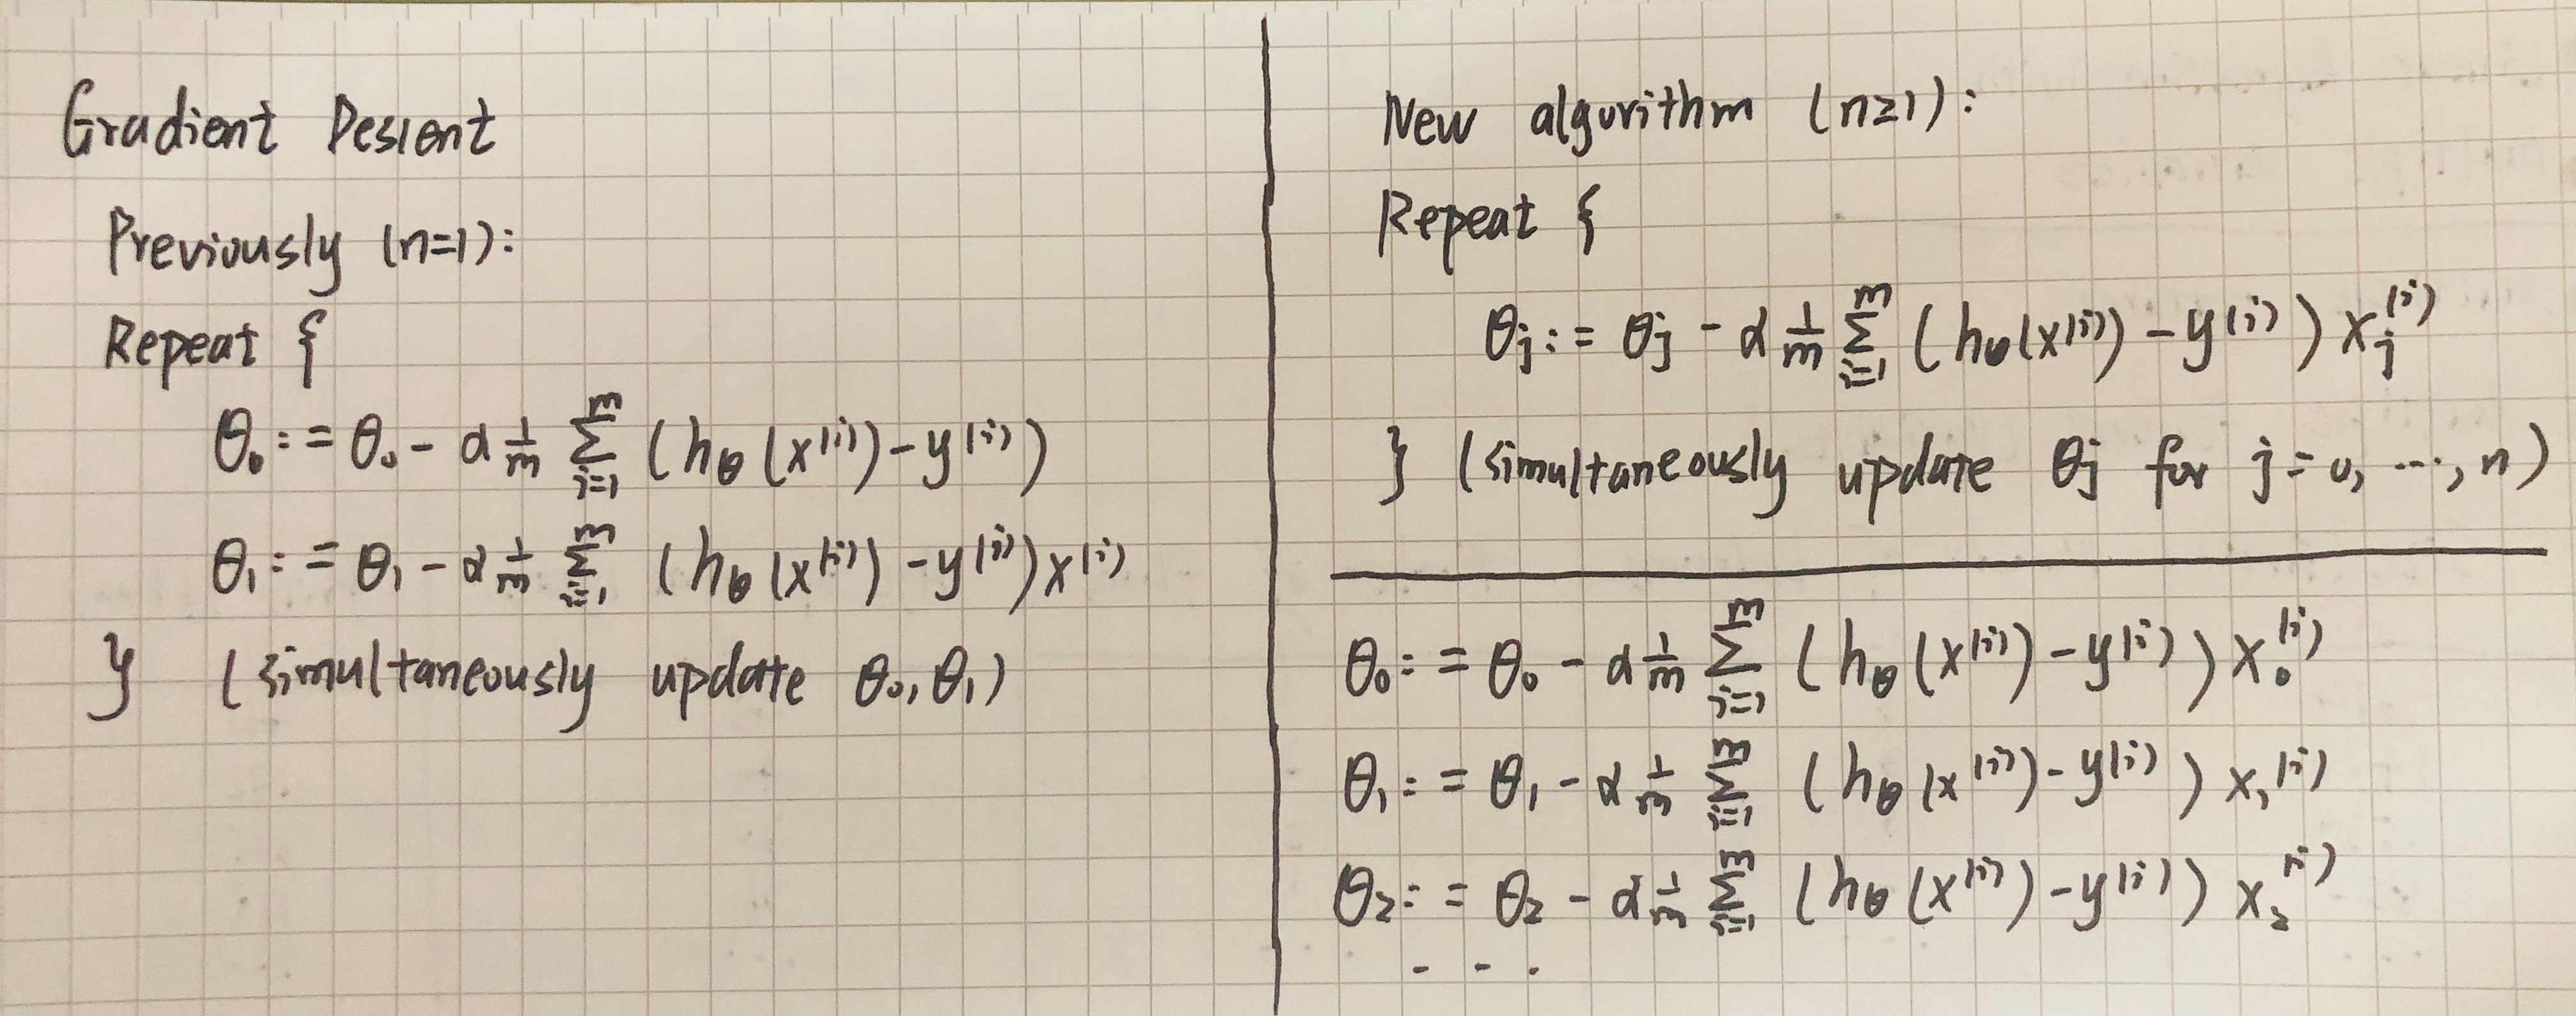 Gradient Descent
Previously (n=1):
Repeat {
θ₀ := θ₀ - α 1/m ∑_{i=1}^{m} (h_θ(x^{(i)}) - y^{(i)})
θ₁ := θ₁ - α 1/m ∑_{i=1}^{m} (h_θ(x^{(i)}) - y^{(i)}) x^{(i)}
} (simultaneously update θ₀, θ₁)
New algorithm (n≥1):
Repeat {
θ_j := θ_j - α 1/m ∑_{i=1}^{m} (h_θ(x^{(i)}) - y^{(i)}) x_j^{(i)}
} (simultaneously update θ_j for j=0, ..., n)
θ₀ := θ₀ - α 1/m ∑_{i=1}^{m} (h_θ(x^{(i)}) - y^{(i)}) x₀^{(i)}
θ₁ := θ₁ - α 1/m ∑_{i=1}^{m} (h_θ(x^{(i)}) - y^{(i)}) x₁^{(i)}
θ₂ := θ₂ - α 1/m ∑_{i=1}^{m} (h_θ(x^{(i)}) - y^{(i)}) x₂^{(i)}
...